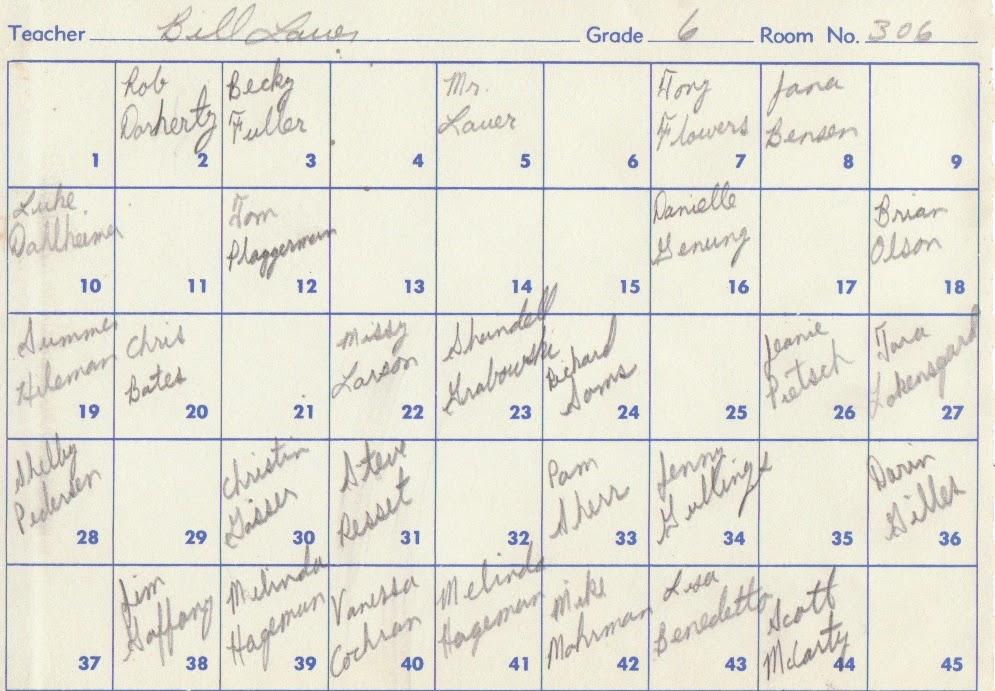 Teacher Bill Lauer Grade 6 Room No. 306
1
Rob
Dorherty
2
Becky
Fuller
3
4
Mr.
Lauer
5
6
Tony
Flowers
7
Jana
Benson
8
9
Luke
Dahlheimer
10
11
Tom
Plaggerman
12
13
14
15
Danielle
Genung
16
17
Brian
Olson
18
Summer
Hileman
19
Chris
Bates
20
21
Missy
Larson
22
Shundell
Grabowski
23
Richard
Soms
24
25
Jeanie
Pietsch
26
Tara
Lokensgard
27
Shelby
Pedersen
28
29
Christin
Gasser
30
Steve
Resset
31
32
Pam
Sherr
33
Jenny
Gullings
34
35
Darin
Gilles
36
37
Jim
Haffang
38
Melinda
Hageman
39
Vanessa
Cochran
40
Melinda
Hageman
41
Mike
Mohrman
42
Lisa
Benedetto
43
Scott
McCarty
44
45